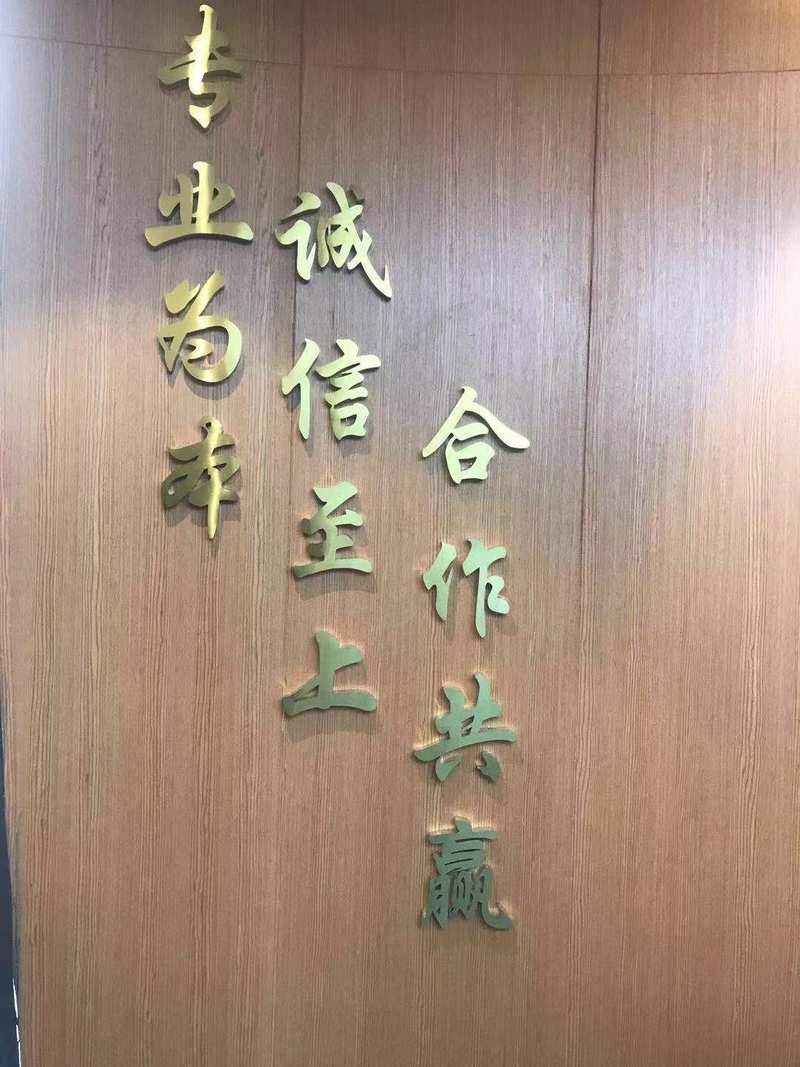 专业为本
诚信至上
合作共赢